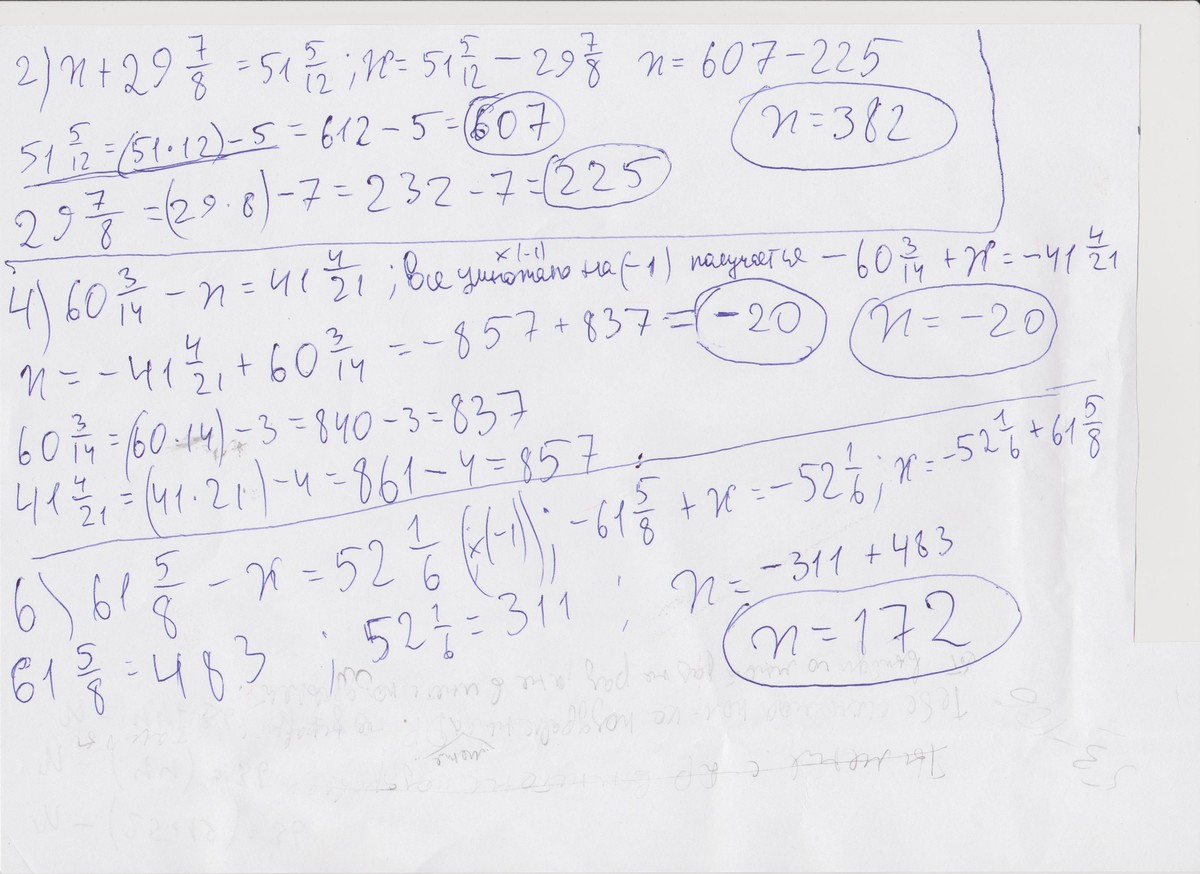 2) x + 29 7/8 = 51 5/12 ; x = 51 5/12 - 29 7/8 x = 607 - 225
51 5/12 = (51·12) - 5 = 612 - 5 = 607 x = 382
29 7/8 = (29·8) - 7 = 232 - 7 = 225
4) 60 3/14 - x = 41 4/21 ; все умножаю на (-1) ×(-1) получается - 60 3/14 + x = - 41 4/21
x = - 41 4/21 + 60 3/14 = - 857 + 837 = -20 x = -20
60 3/14 = (60·14) - 3 = 840 - 3 = 837
41 4/21 = (41·21) - 4 = 861 - 4 = 857
6) 61 5/8 - x = 52 1/6 (×(-1)) ; - 61 5/8 + x = - 52 1/6 ; x = - 52 1/6 + 61 5/8
61 5/8 = 483 ; 52 1/6 = 311 ; x = - 311 + 483
x = 172